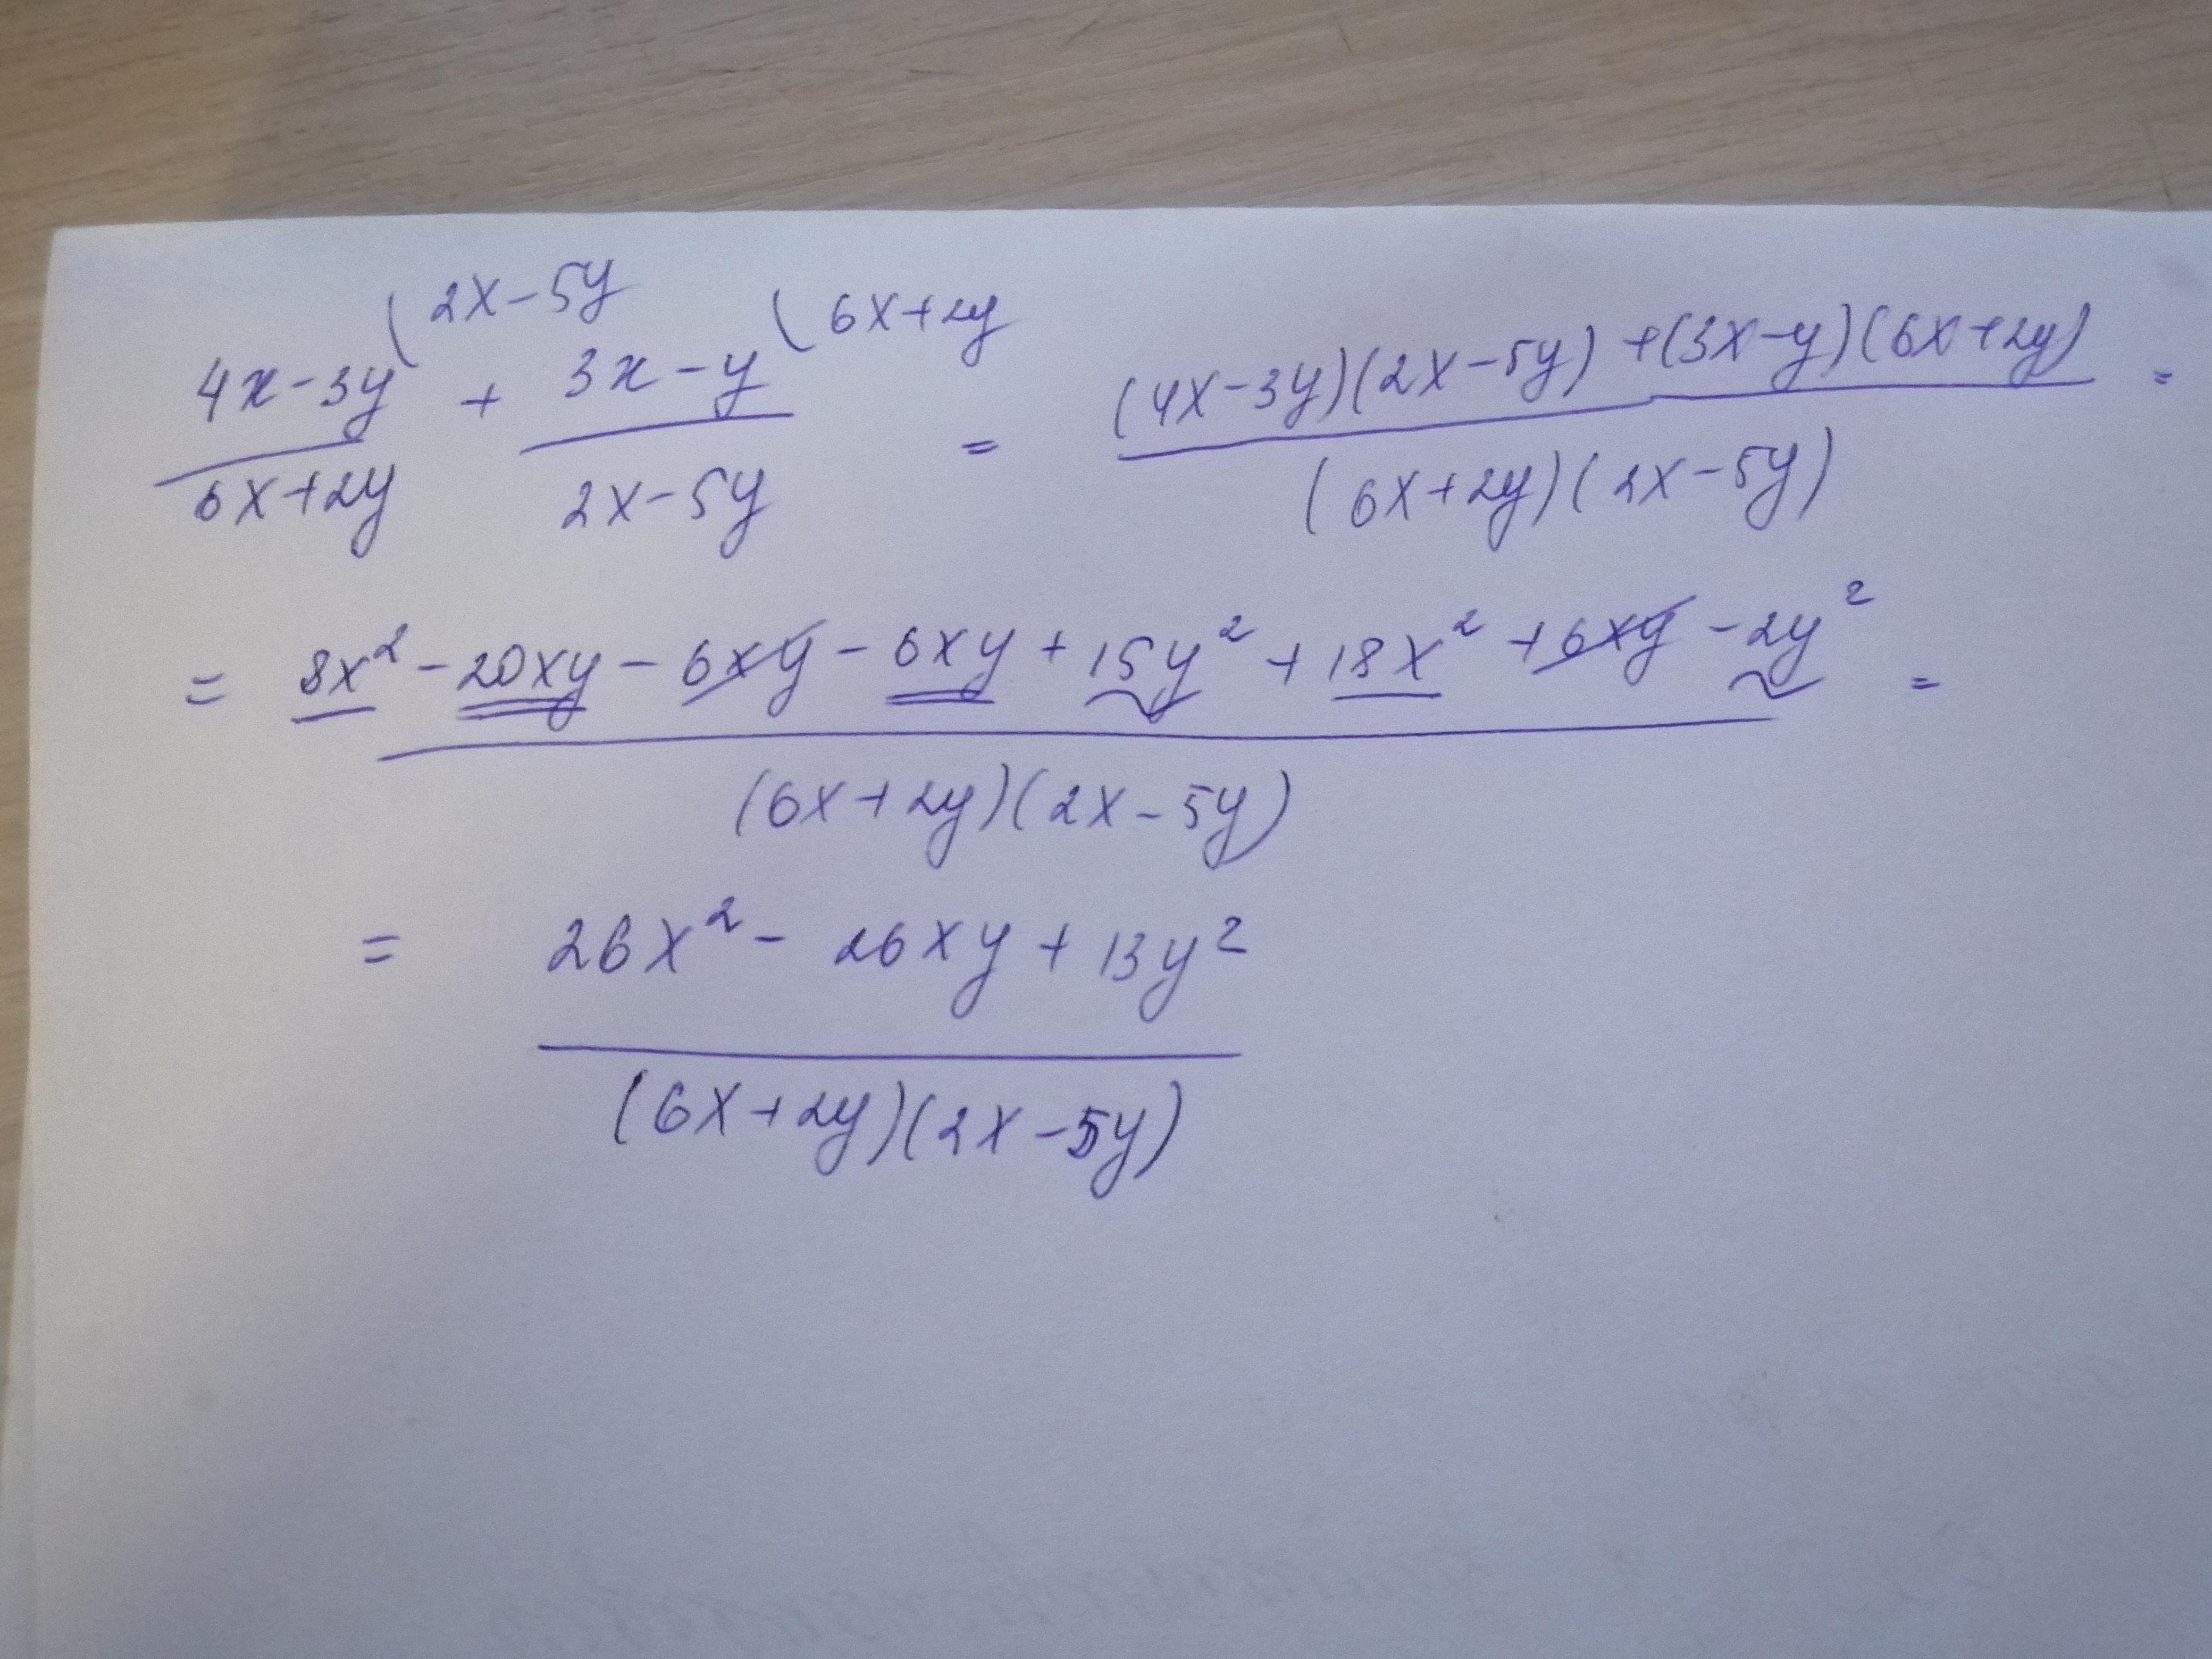 (4x-3y)/(6x+2y) (2x-5y + (3x-y)/(2x-5y) (6x+2y = ((4x-3y)(2x-5y)+(3x-y)(6x+2y))/((6x+2y)(2x-5y)) =
= (8x² - 20xy - 6xy - 6xy + 15y² + 18x² + 6xy - 2y²)/((6x+2y)(2x-5y)) =
= (26x² - 26xy + 13y²)/((6x+2y)(2x-5y))